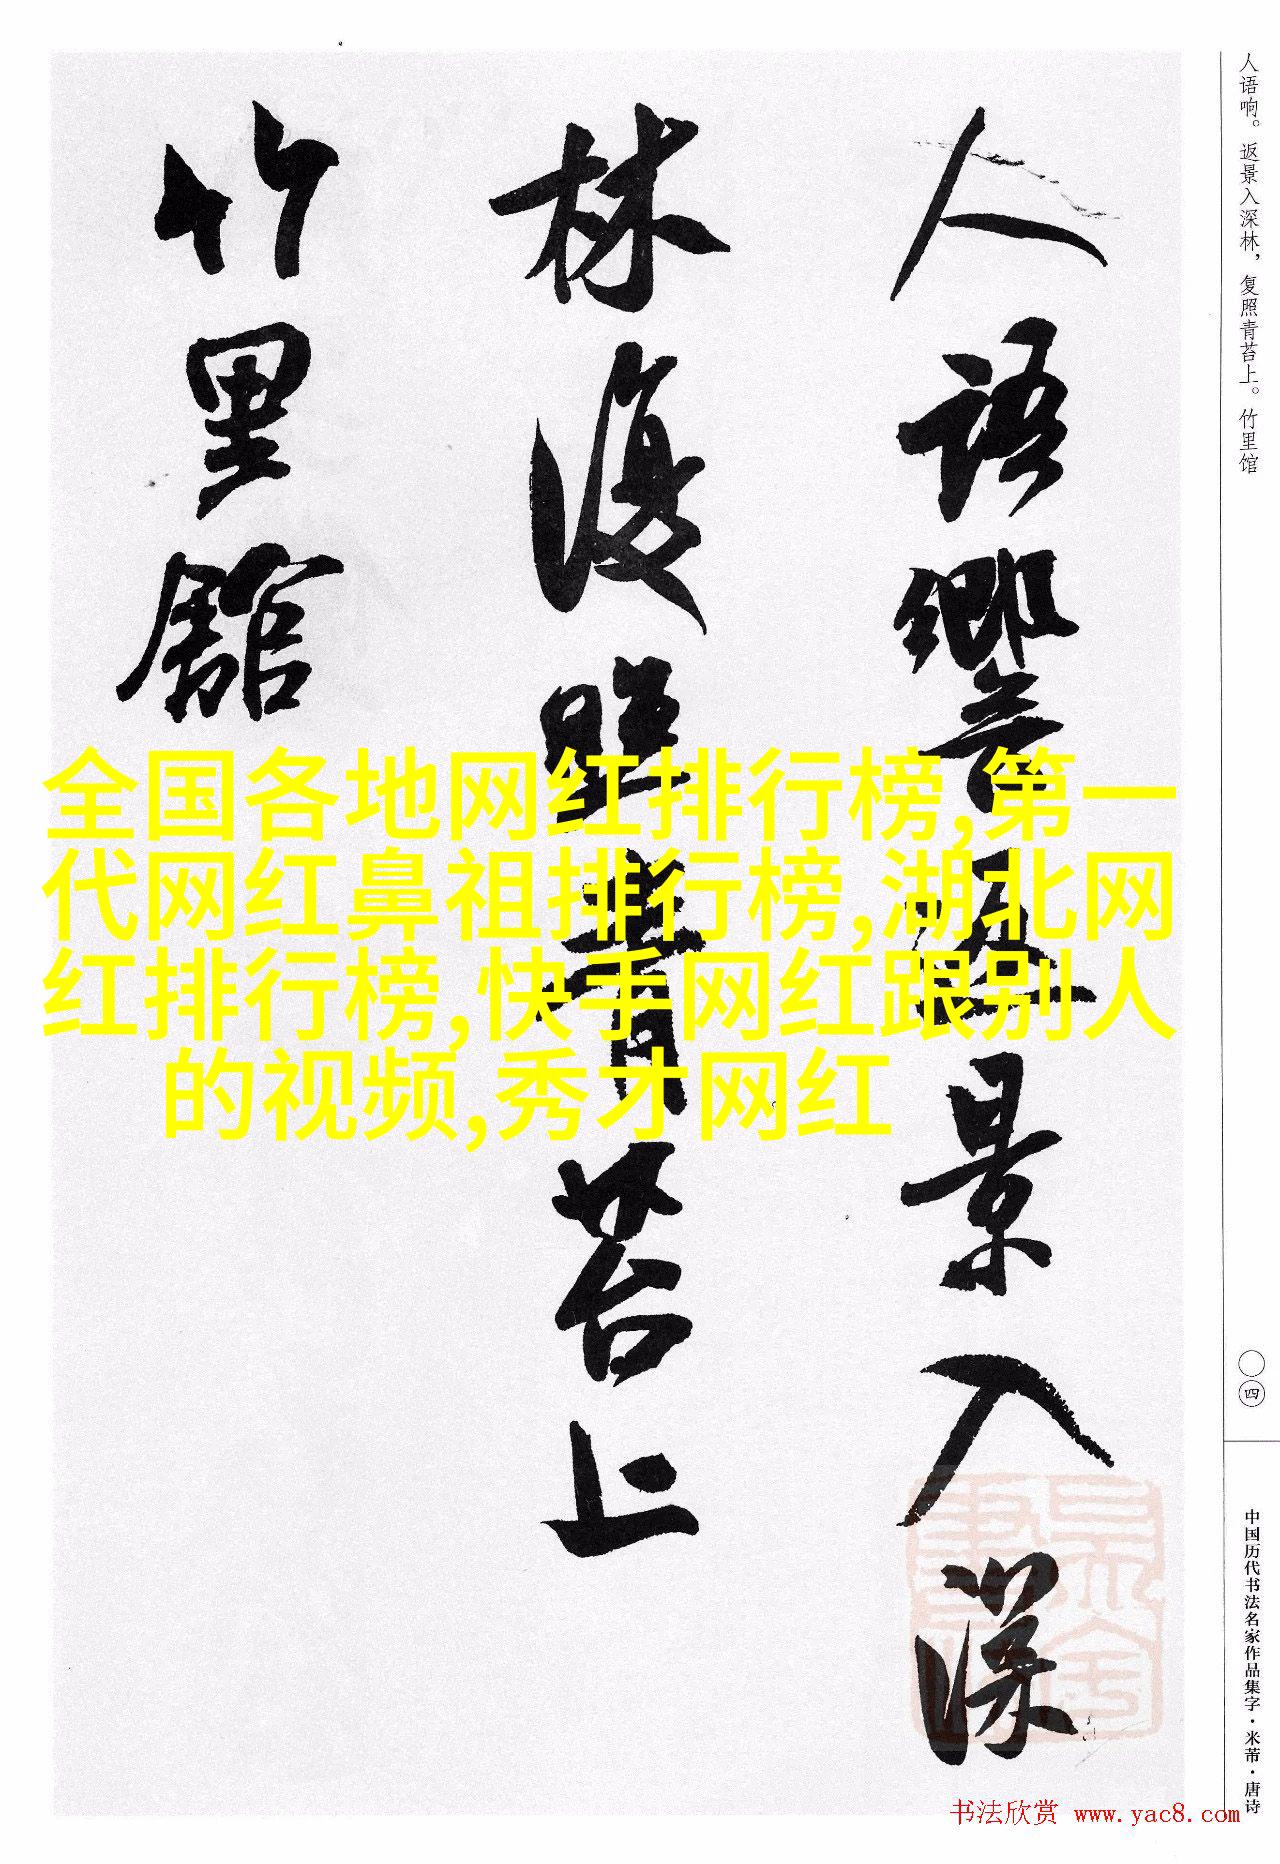 人语响。返景入深林，复照青苔上。竹里馆
〇四
中国历代书法名家作品集字·米芾·唐诗
人語響返景入深
林復照青苔上
竹里館
全国各地网红排行榜,第一
代网红鼻祖排行榜,湖北网
红排行榜,快手网红跟别人
的视频,秀才网红
书法欣赏 www.yac8.com